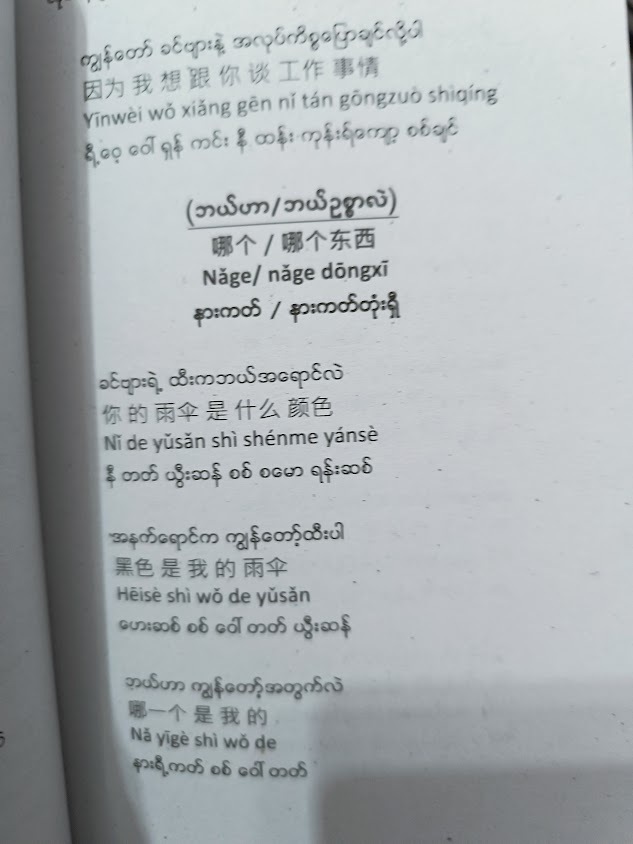 ကျွန်တော် ခင်ဗျားနဲ့ အလုပ်ကိစ္စပြောချင်လို့ပါ
因为 我 想 跟 你 谈 工作 事情
Yīnwèi wǒ xiǎng gēn nǐ tán gōngzuò shìqíng
ရီဝေ့ ဝေါ် ရှန် ကင်း နီ ထန်း ကုန်းရ်ကျော့ စစ်ချင်
(ဘယ်ဟာ/ဘယ်ဥစ္စာလဲ)
哪个 / 哪个东西
Nǎge/ nǎge dōngxī
နားကတ် / နားကတ်တုံးရှီ
ခင်ဗျားရဲ့ ထီးကဘယ်အရောင်လဲ
你 的 雨伞 是 什么 颜色
Nǐ de yǔsǎn shì shénme yánsè
နီ တတ် ယွီးဆန် စစ် စမော ရန်းဆစ်
အနက်ရောင်က ကျွန်တော့်ထီးပါ
黑色 是 我 的 雨伞
Hēisè shì wǒ de yǔsǎn
ဟေးဆစ် စစ် ဝေါ် တတ် ယွီးဆန်
ဘယ်ဟာ ကျွန်တော့်အတွက်လဲ
哪一个 是 我 的
Nǎ yīgè shì wǒ de
နားရီ့ကတ် စစ် ဝေါ် တတ်